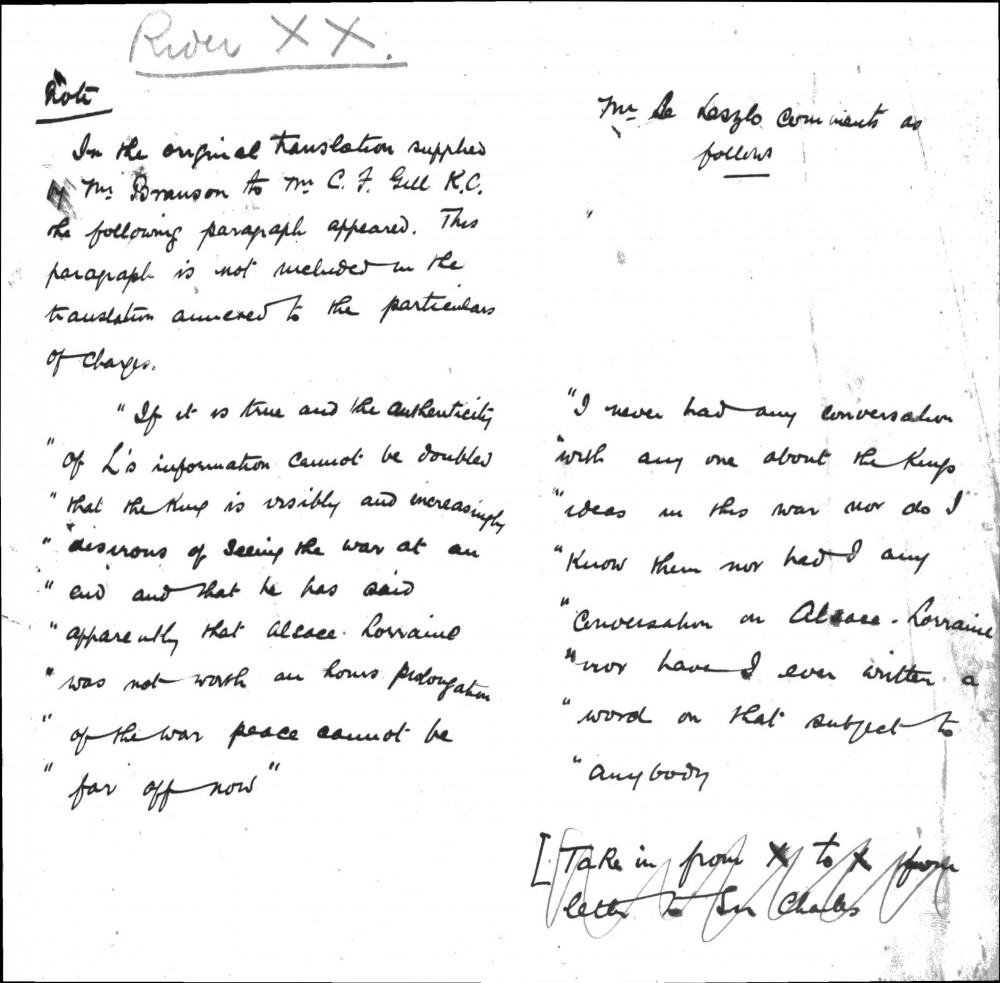 Rider XX.
Note
In the original translation supplied
by Mr Branson to Mr C. F. Gill K.C.
the following paragraph appeared. This
paragraph is not included in the
translation annexed to the particulars
of charges.
"If it is true and the authenticity
"of L's information cannot be doubted
"that the King is visibly and increasingly
"desirous of seeing the war at an
"end and that he has said
"apparently that Alsace-Lorraine
"was not worth an hours prolongation
"of the war peace cannot be
"far off now"
Mr de Laszlo comments as
follows
"I never had any conversation
"with any one about the Kings
"ideas in this war nor do I
"know them nor had I any
"conversation on Alsace-Lorraine
"nor have I ever written a
"word on that subject to
"anybody
[Take in from X to X from
letter to Sir Charles